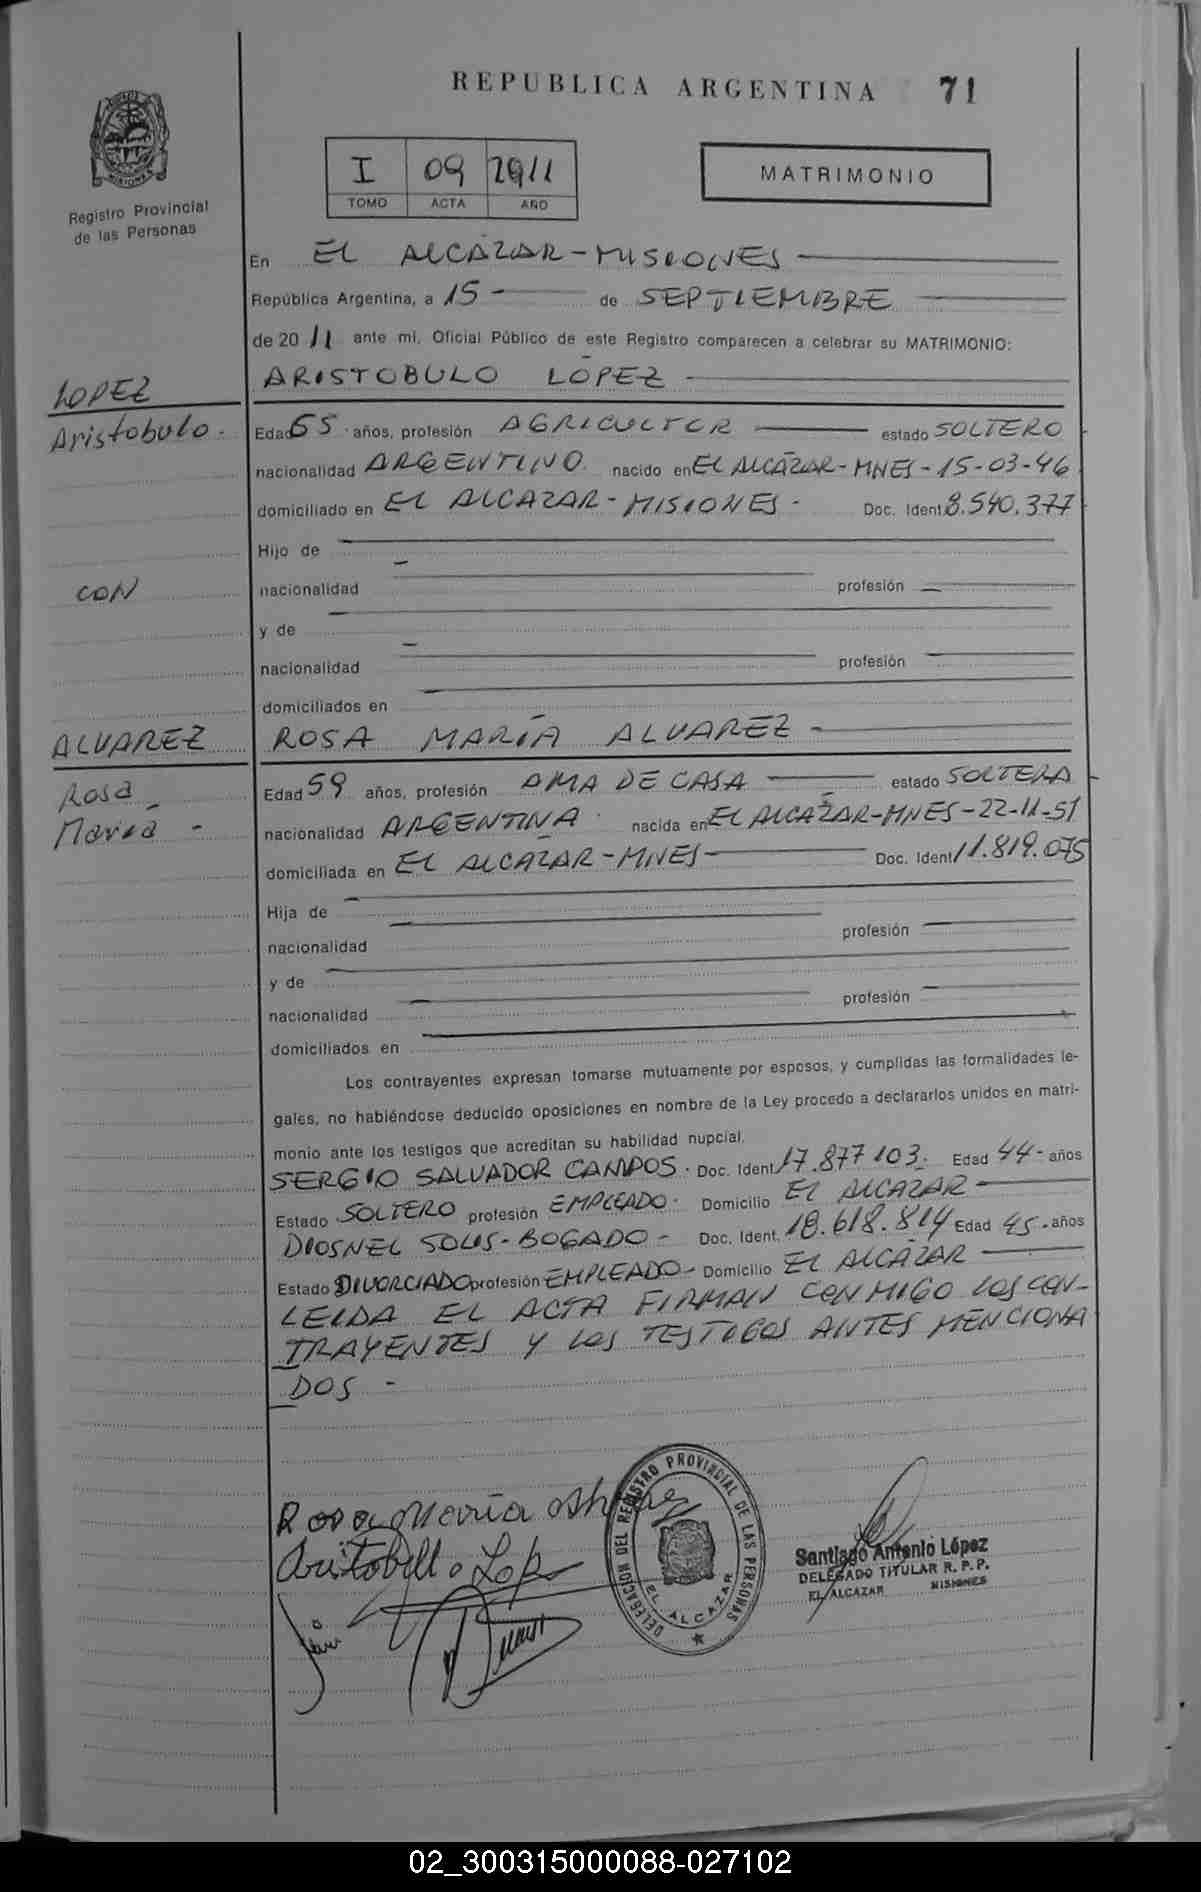 REPUBLICA ARGENTINA 71
Registro Provincial
de las Personas
I 09 2011
TOMO ACTA AÑO
MATRIMONIO
En EL ALCÁZAR-MISIONES
República Argentina, a 15 - de SEPTIEMBRE
de 2011 ante mi, Oficial Público de este Registro comparecen a celebrar su MATRIMONIO:
LOPEZ
ARISTOBULO LÓPEZ -
Aristobulo.
Edad 65 años, profesión AGRICULTOR estado SOLTERO
nacionalidad ARGENTINO nacido en EL ALCÁZAR-MNES-15-03-46
domiciliado en EL ALCAZAR-MISIONES- Doc. Ident. 8.540.377
Hijo de
CON
nacionalidad profesión
y de
nacionalidad profesión
domiciliados en
ALVAREZ
ROSA MARÍA ALVAREZ -
Rosa
María -
Edad 59 años, profesión AMA DE CASA estado SOLTERA
nacionalidad ARGENTINA nacida en EL ALCÁZAR-MNES-22-11-51
domiciliada en EL ALCAZAR-MNES- Doc. Ident. 11.819.075
Hija de
nacionalidad profesión
y de
nacionalidad profesión
domiciliados en
Los contrayentes expresan tomarse mutuamente por esposos, y cumplidas las formalidades le-
gales, no habiéndose deducido oposiciones en nombre de la Ley procedo a declararlos unidos en matri-
monio ante los testigos que acreditan su habilidad nupcial.
SERGIO SALVADOR CAMPOS. Doc. Ident. 17.877.103. Edad 44- años
Estado SOLTERO profesión EMPLEADO. Domicilio EL ALCAZAR
DIOSNEL SOLIS-BOGADO- Doc. Ident. 18.618.814 Edad 45- años
Estado DIVORCIADO profesión EMPLEADO- Domicilio EL ALCÁZAR
LEIDA EL ACTA FIRMAN CONMIGO LOS CON-
TRAYENTES Y LOS TESTIGOS ANTES MENCIONA
DOS -
Rosa María
Aristobulo Lope
DELEGACION DEL REGISTRO PROVINCIAL DE LAS PERSONAS
EL ALCAZAR
Santiago Antonio López
DELEGADO TITULAR R. P. P.
EL ALCAZAR MISIONES
02_300315000088-027102